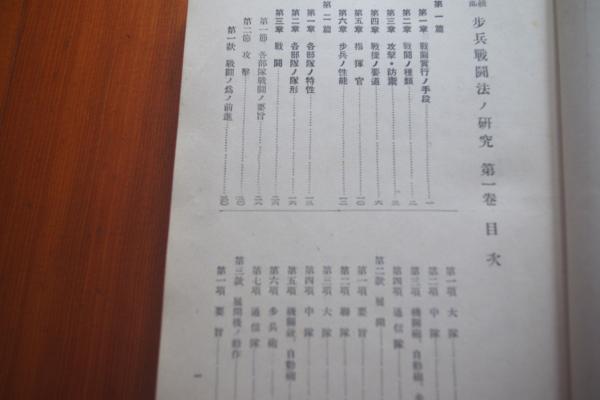 步兵戰鬪法ノ硏究 第一卷 目次
第一篇
第一章 戰鬪實行ノ手段 一
第二章 戰鬪ノ種類 二
第三章 攻擊・防禦 三
第四章 戰捷ノ要道 六
第五章 指揮官 一〇
第六章 步兵ノ性能 一二
第二篇
第一章 各部隊ノ特性 一三
第二章 各部隊ノ隊形 一六
第三章 戰鬪 二六
第一節 各部隊戰鬪ノ要旨 二六
第二節 攻擊 三〇
第一款 戰鬪ノ爲ノ前進 三〇
第一項 大隊
第二項 中隊
第三項 機關銃、自動砲、步
第四項 通信隊
第二款 展開
第一項 要旨
第二項 聯隊
第三項 大隊
第四項 中隊
第五項 機關銃、自動砲
第六項 步兵砲
第七項 通信隊
第三款 展開後ノ動作
第一項 要旨
一